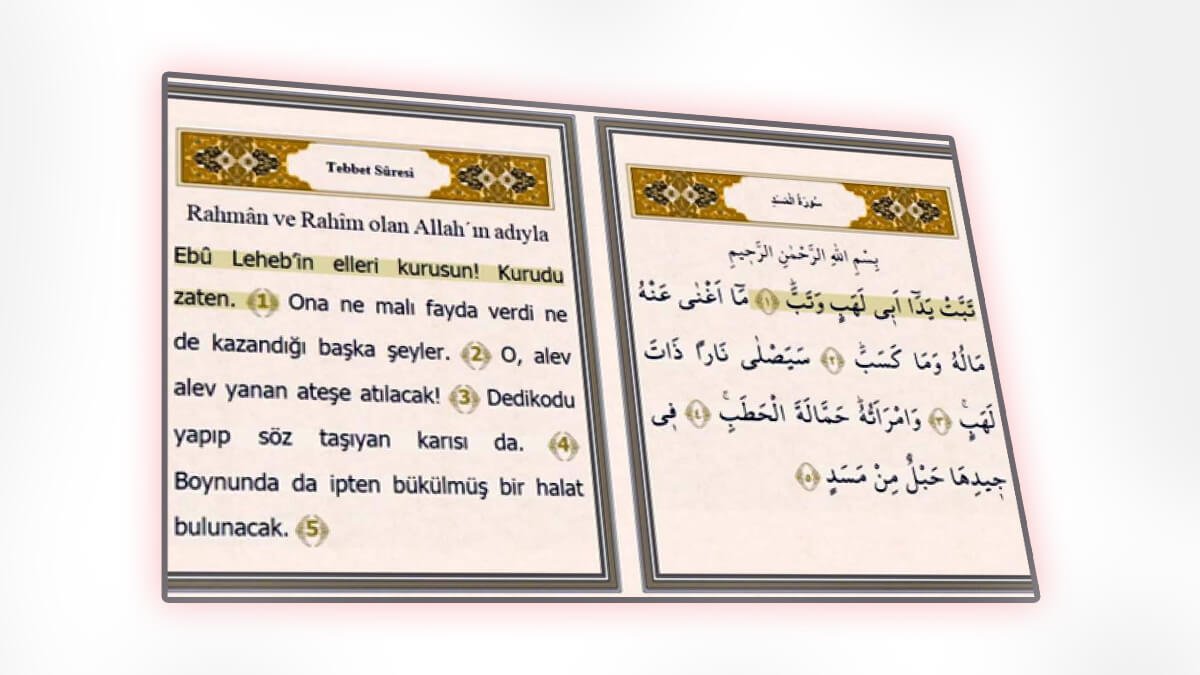 Tebbet Sûresi
Rahmân ve Rahîm olan Allah´ın adıyla
Ebû Leheb’in elleri kurusun! Kurudu
zaten. 1 Ona ne malı fayda verdi ne
de kazandığı başka şeyler. 2 O, alev
alev yanan ateşe atılacak! 3 Dedikodu
yapıp söz taşıyan karısı da. 4
Boynunda da ipten bükülmüş bir halat
bulunacak. 5
سُورَةُ الْمَسَدِ
بِسْمِ اللّٰهِ الرَّحْمٰنِ الرَّح۪يمِ
تَبَّتْ يَدَٓا اَب۪ي لَهَبٍ وَتَبَّۜ ﴿١﴾ مَٓا اَغْنٰى عَنْهُ
مَالُهُ وَمَا كَسَبَۜ ﴿٢﴾ سَيَصْلٰى نَارًا ذَاتَ
لَهَبٍۚ ﴿٣﴾ وَامْرَاَتُهُۜ حَمَّالَةَ الْحَطَبِۚ ﴿٤﴾ ف۪ي
ج۪يدِهَا حَبْلٌ مِنْ مَسَدٍ ﴿٥﴾